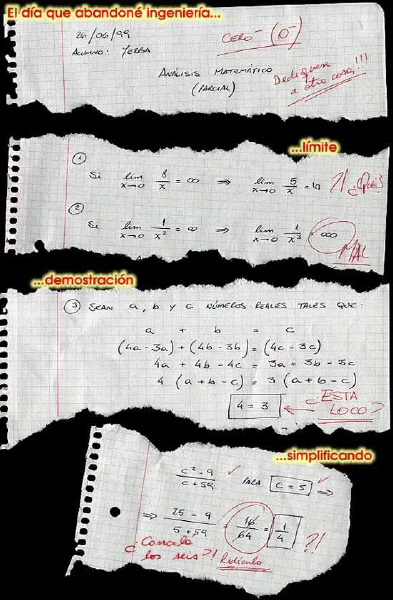 El día que abandoné ingeniería...
26/06/99
CERO⁻ (0⁻)
ALUMNO: YERBA
ANÁLISIS MATEMÁTICO
(PARCIAL)
Dedíquese
a otra cosa!!!
...límite
①
Si lim x→0 8/x = ∞ ⇒ lim x→0 5/x = ഗ ?! ¿Qué?
②
Si lim x→0 1/x² = ∞ ⇒ lim x→0 1/x³ = ∞
MAL
...demostración
③ SEAN a, b y c NÚMEROS REALES TALES QUE:
a + b = c
(4a-3a) + (4b-3b) = (4c-3c)
4a + 4b - 4c = 3a + 3b - 3c
4 (a+b-c) = 3 (a+b-c)
4 = 3
¿ESTA
LOCO?
...simplificando
c²-9/c+59 PARA c = 5 ⇒
⇒ 25-9/5+59 = 16/64 = 1/4 ?!
¿Cancela
los seis?! Ridículo